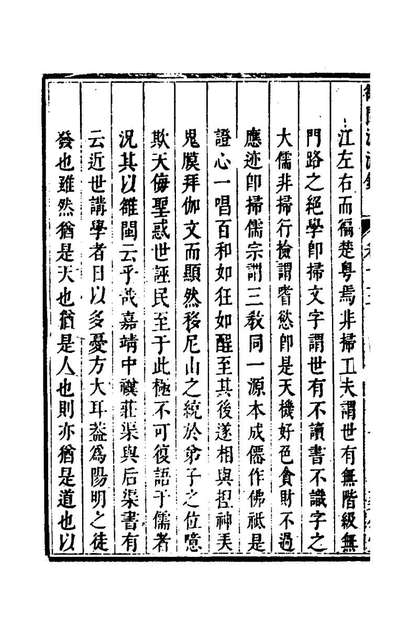 江左右而徧楚粵焉非掃工夫謂世有無階級無
門路之絕學卽掃文字謂世有不讀書不識字之
大儒非掃行檢謂嗜慾卽是天機好色貪財不過
應迹卽掃儒宗謂三敎同一源本成儒作佛祗是
證心一唱百和如狂如醒至其後遂相與捏神弄
鬼膜拜伽文而顯然移尼山之統於弟子之位噫
欺天侮聖惑世誣民至于此極不可復語于儒者
況其以雒閩云乎哉嘉靖中禩莊渠與后渠書有
云近世講學者日以多憂方大耳葢爲陽明之徒
發也雖然猶是天也猶是人也則亦猶是道也以